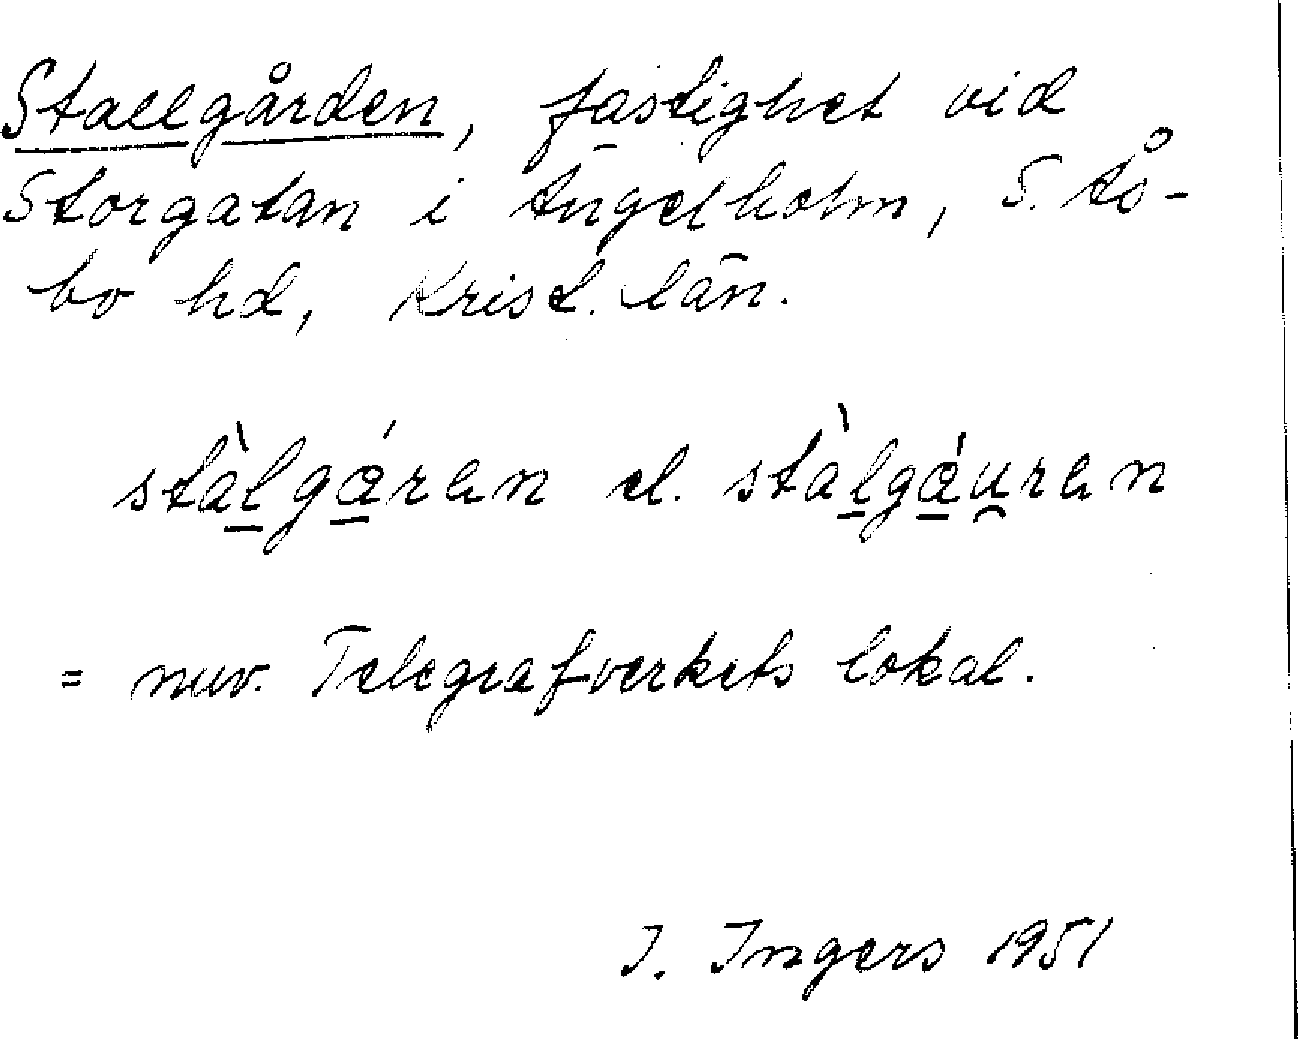 Stallgården, fastighet vid
Storgatan i Ängelholm, S. Ås-
bo hd, Krist. län.
stàlgáran el. stàlgáuran
= nuv. Telegrafverkets lokal.
I. Ingers 1951